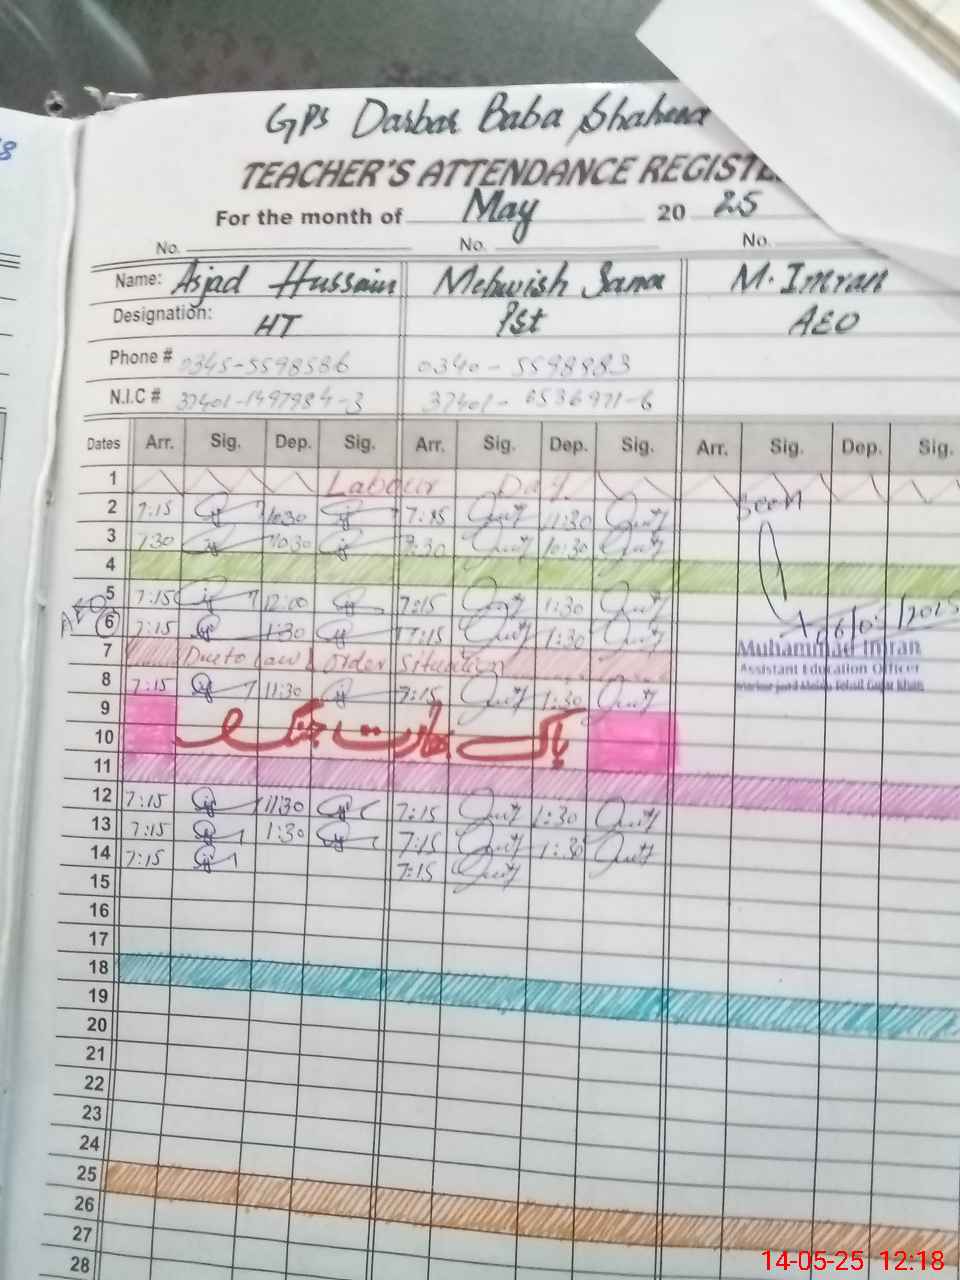 GPS Darbar Baba Shaheed
TEACHER'S ATTENDANCE REGISTE
For the month of May 20 25
No. No. No.
Name: Asjad Hussain Mehwish Sana M. Imran
Designation: HT Pst AEO
Phone # 0345-5598586 0340-5598883
N.I.C # 37401-1497984-3 37401-6536971-6
Dates Arr. Sig. Dep. Sig. Arr. Sig. Dep. Sig. Arr. Sig. Dep. Sig.
1 Labour Day
2 7:15 10:30 7:15 11:30 Seen
3 7:30 10:30 7:30 10:30
4
5 7:15 12:00 7:15 1:30
AEO 6 7:15 1:30 7:15 1:30 06/05/2025
7 Due to law & order situation Muhammad Imran
Assistant Education Officer
8 7:15 11:30 7:15 1:30
9
10 پاک بھارت جنگ
11
12 7:15 11:30 7:15 1:30
13 7:15 1:30 7:15 1:30
14 7:15 7:15
15
16
17
18
19
20
21
22
23
24
25
26
27
28
14-05-25 12:18